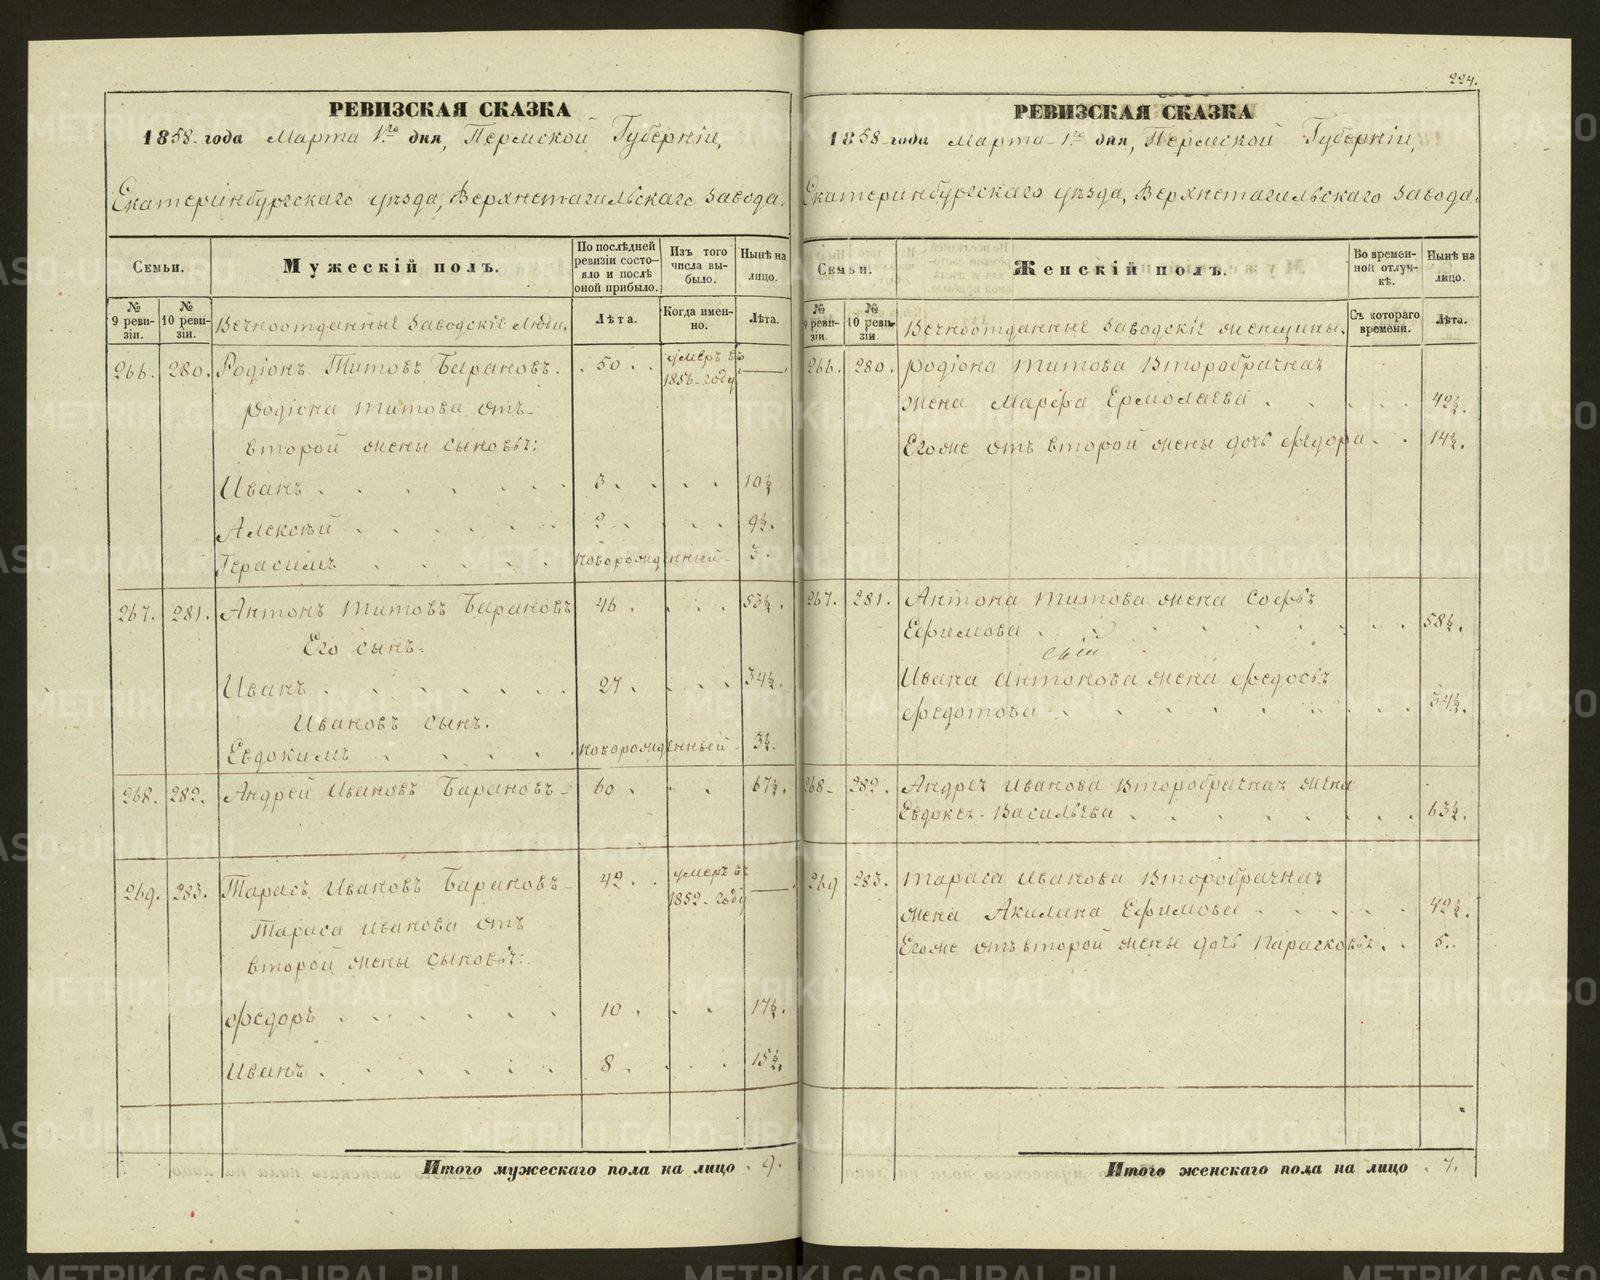 РЕВИЗСКАЯ СКАЗКА
1858 года Марта 1го дня, Пермской Губерніи,
Екатеринбургскаго уѣзда, Верхнетагильскаго Завода.
Семьи.
Мужескій полъ.
По послѣдней ревизіи состояло и послѣ оной прибыло.
Изъ того числа выбыло.
Нынѣ на лицо.
№ 9 ревизіи.
№ 10 ревизіи.
Вечноотданные Заводскіе Люди.
Лѣта.
Когда именно.
Лѣта.
266. 280. Родіонъ Титовъ Барановъ. 50. умеръ въ 1856 году —
Родіона Титова отъ
второй жены сыновья:
Иванъ 3. 10½
Алексѣй 2. 9½.
Герасимъ новорожденный 3.
267. 281. Антонъ Титовъ Барановъ 46. 53½.
Его сынъ.
Иванъ 27. 34½.
Ивановъ сынъ.
Евдокимъ новорожденный 3½.
268. 282. Андрей Ивановъ Барановъ 60. 67½.
269. 283. Тарасъ Ивановъ Барановъ 42. умеръ въ 1852 году —
Тараса Иванова отъ
второй жены сыновья:
Федоръ 10. 17½.
Иванъ 8. 15½.
Итого мужескаго пола на лицо 9.
224.
РЕВИЗСКАЯ СКАЗКА
1858 года Марта 1го дня, Пермской Губерніи,
Екатеринбургскаго уѣзда, Верхнетагильскаго Завода.
Семьи.
Женскій полъ.
Во временной отлучкѣ.
Нынѣ на лицо.
№ 9 ревизіи.
№ 10 ревизіи.
Вечноотданные Заводскіе женщины.
Съ котораго времени.
Лѣта.
266. 280. Родіона Титова Второбрачная
жена Марфа Ермолаева 42½.
Егоже отъ второй жены дочь Федора 14½.
267. 281. Антона Титова жена Софья
Ефимова 58½.
Ивана Антонова жена Федосья
Федотова 34½.
268. 282. Андрея Иванова Второбрачная жена
Евдокея Васильева 63½.
269 283. Тараса Иванова Второбрачная
жена Акилина Ефимова 42½.
Егоже отъ второй жены дочь Парасковья. 5.
Итого женскаго пола на лицо 7.
METRIKI.GASO-URAL.RU